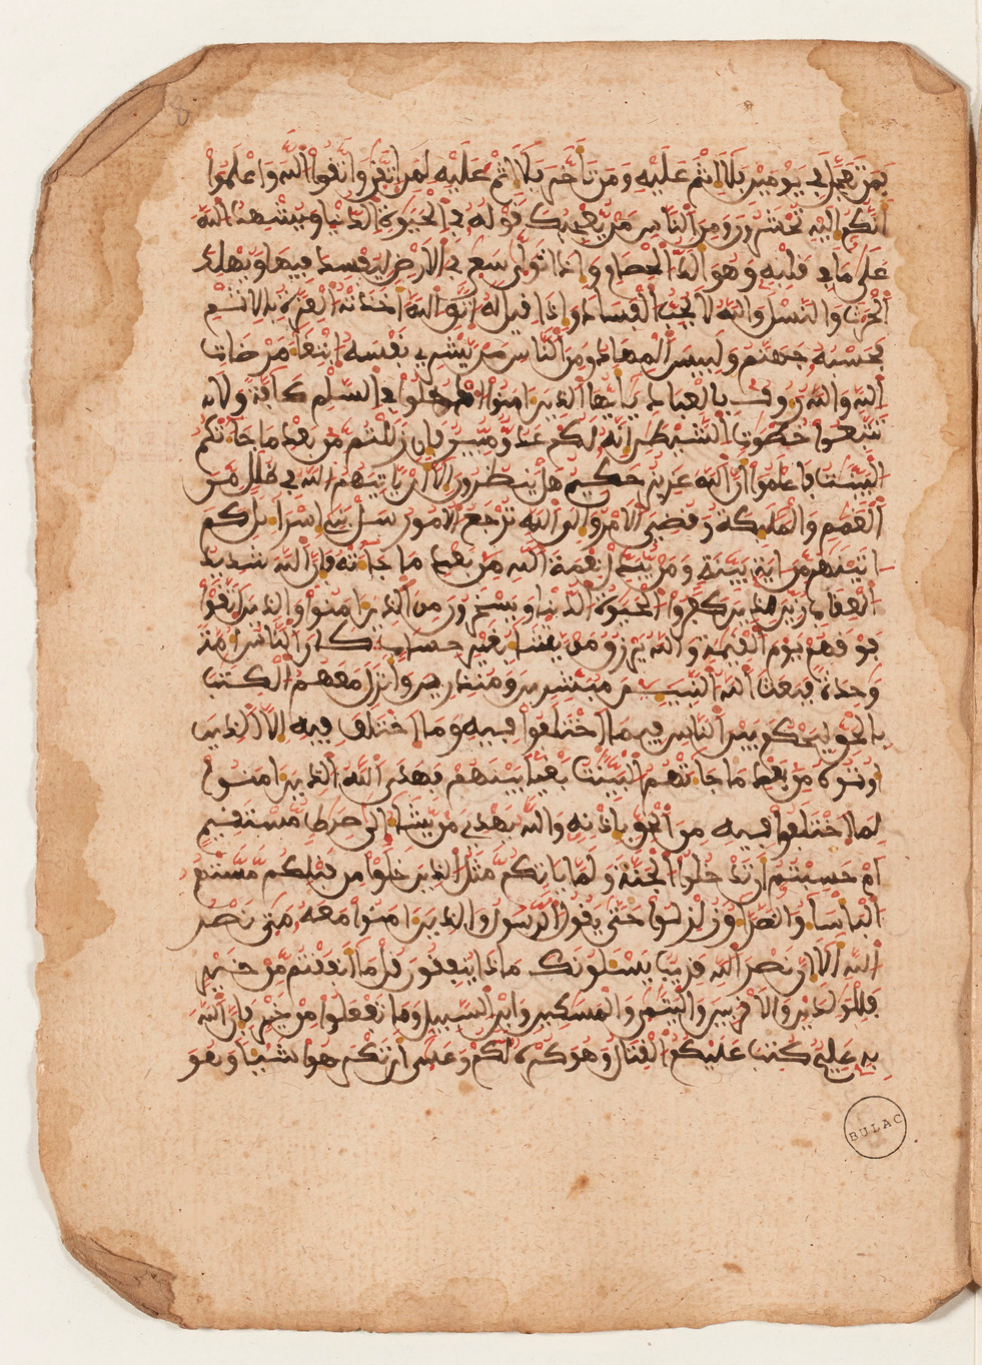 فمن تعجل في يومين فلا إثم عليه ومن تأخر فلا إثم عليه لمن اتقى واتقوا الله واعلموا
أنكم إليه تحشرون ومن الناس من يعجبك قوله في الحيوة الدنيا ويشهد الله
على ما في قلبه وهو ألد الخصام وإذا تولى سعى في الأرض ليفسد فيها ويهلك
الحرث والنسل والله لا يحب الفساد وإذا قيل له اتق الله أخذته العزة بالإثم
فحسبه جهنم ولبيس المهاد ومن الناس من يشري نفسه ابتغاء مرضات
الله والله رءوف بالعباد يأيها الذين ءامنوا ادخلوا في السلم كافة ولا
تتبعوا خطوت الشيطن إنه لكم عدو مبين فإن زللتم من بعد ما جاءتكم
البينت فاعلموا أن الله عزيز حكيم هل ينظرون إلا أن ياتيهم الله في ظلل من
الغمم والمليكة وقضي الأمر وإلى الله ترجع الأمور سل بني إسراءيل كم
ءاتينهم من ءاية بينة ومن يبدل نعمة الله من بعد ما جاءته فإن الله شديد
العقاب زين للذين كفروا الحيوة الدنيا ويسخرون من الذين ءامنوا والذين اتقوا
فوقهم يوم القيمة والله يرزق من يشاء بغير حساب كان الناس أمة
وحدة فبعث الله النبيين مبشرين ومنذرين وأنزل معهم الكتب
بالحق ليحكم بين الناس فيما اختلفوا فيه وما اختلف فيه إلا الذين
أوتوه من بعد ما جاءتهم البينت بغيا بينهم فهدى الله الذين ءامنوا
لما اختلفوا فيه من الحق بإذنه والله يهدي من يشاء إلى صرط مستقيم
أم حسبتم أن تدخلوا الجنة ولما ياتكم مثل الذين خلوا من قبلكم مستهم
الباساء والضراء وزلزلوا حتى يقول الرسول والذين ءامنوا معه متى نصر
الله ألا إن نصر الله قريب يسئلونك ماذا ينفقون قل ما أنفقتم من خير
فللولدين والأقربين واليتمى والمسكين وابن السبيل وما تفعلوا من خير فإن الله
به عليم كتب عليكم القتال وهو كره لكم وعسى أن تكرهوا شيئا وهو
BULAC